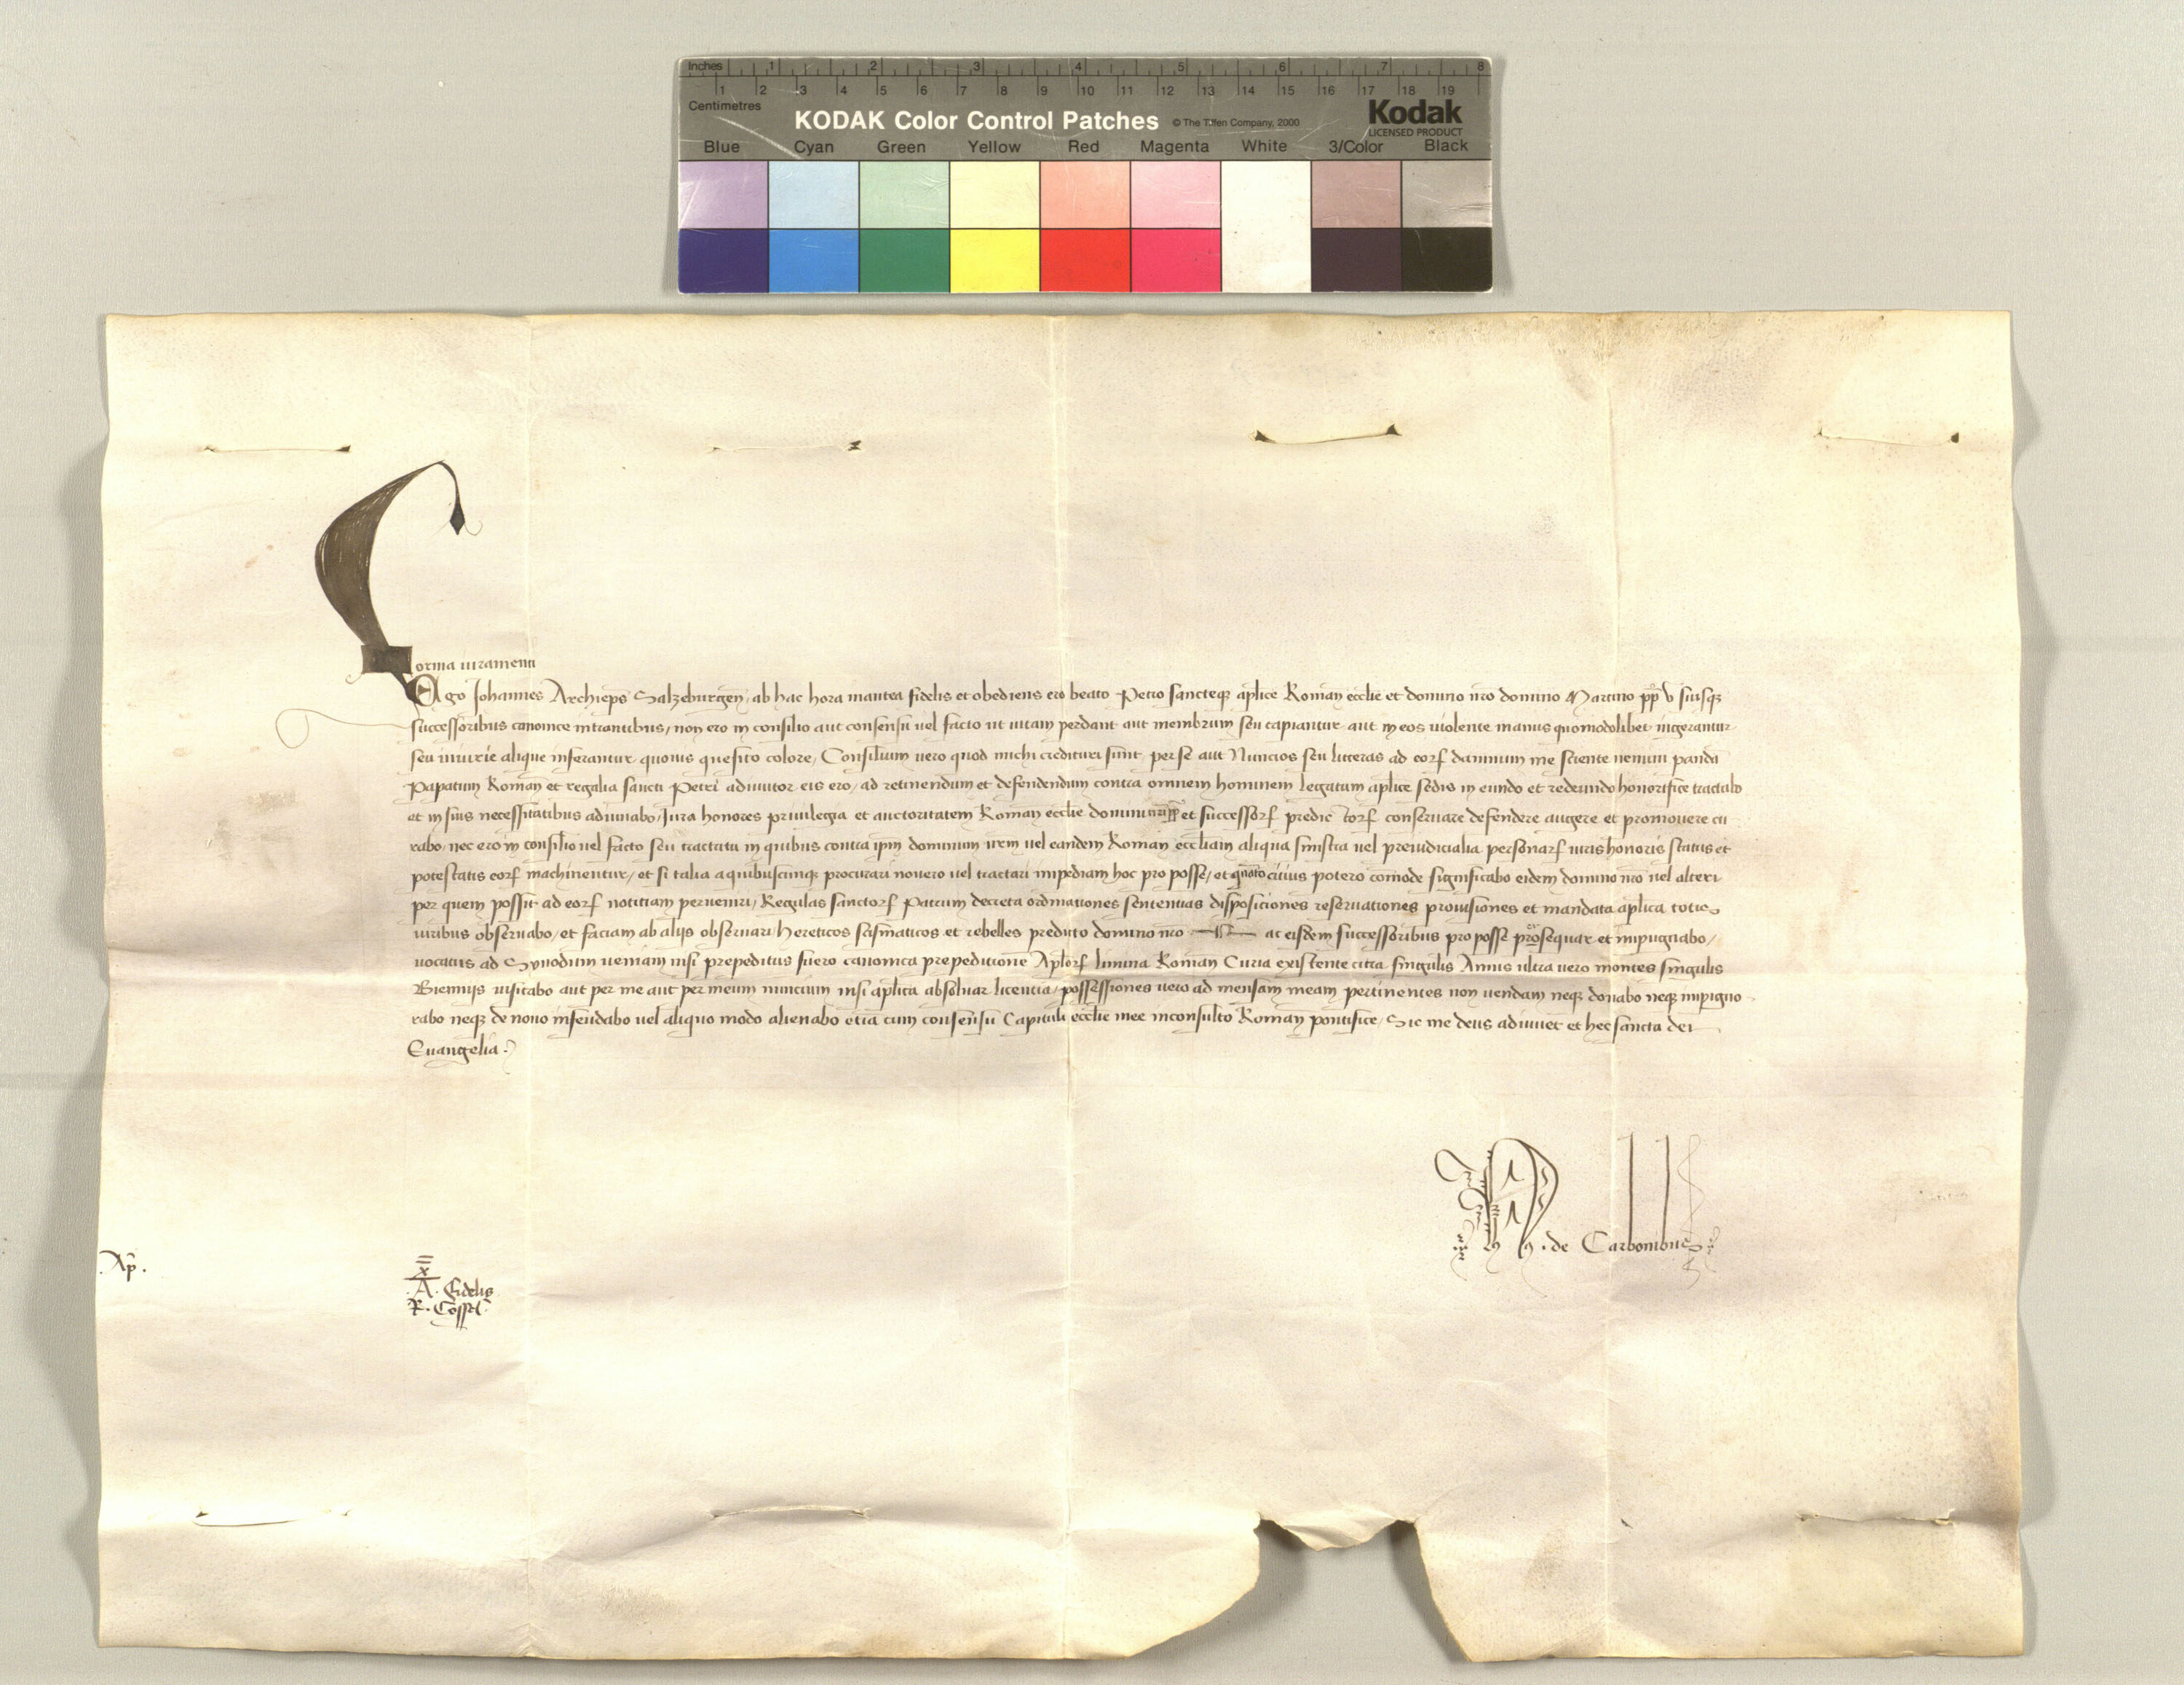 Inches 1 2 3 4 5 6 7 8
1 2 3 4 5 6 7 8 9 10 11 12 13 14 15 16 17 18 19
Centimetres
KODAK Color Control Patches © The Tiffen Company, 2000 Kodak
LICENSED PRODUCT
Blue Cyan Green Yellow Red Magenta White 3/Color Black
Forma iuramenti
Ego Johannes Archiep̄s Salzeburgen̄ ab hac hora inantea fidelis et obediens ero beato Petro sancteqꝫ ap̄lice Roman̄ eccl̄ie et domino nr̄o domino Martino pp̄ v suisqꝫ
successoribus canonice intrantibus, non ero in consilio aut consensu uel facto ut uitam perdant aut membrum seu capiantur aut in eos uiolente manus quomodolibet ingerantur
seu iniurie alique inferantur quouis quesito colore, Consilium uero quod michi credituri sunt per se aut Nuncios seu litteras ad eorꝝ damnum me sciente nemini pandā
Papatum Roman̄ et regalia sancti Petri adiutor eis ero, ad retinendum et defendendum contra omnem hominem legatum ap̄lice sedis in eundo et redeundo honorifice tractabo
et in suis necessitatibus adiuuabo, Jura honores priuilegia et auctoritatem Roman̄ eccl̄ie domini nr̄i pp̄ et successorꝝ predictorꝝ conseruare defendere augere et promouere cu
rabo, nec ero in consilio uel facto seu tractatu in quibus contra ip̄m dominum nr̄m uel eandem Roman̄ eccl̄iam aliqua sinistra uel preiudicialia personarꝝ iuris honoris status et
potestatis eorꝝ machinentur, et si talia a quibuscunqꝫ procurari nouero uel tractari impediam hoc pro posse, et quāto citius potero cōmode significabo eidem domino nr̄o uel alteri
per quem possit ad eorꝝ notitiam peruenire, Regulas sanctorꝝ Patrum decreta ordinationes sententias dispositiones reseruationes prouisiones et mandata ap̄lica totis
uiribus obseruabo, et faciam ab alijs obseruari, hereticos scismaticos et rebelles predicto domino nr̄o ac eisdem successoribus pro posse prosequar et impugnabo,
uocatus ad Synodum ueniam nisi prepeditus fuero canonica prepeditione Ap̄lorꝝ limina Roman̄ Curia existente citra singulis Annis ultra uero montes singulis
Biennijs uisitabo aut per me aut per meum nuncium nisi ap̄lica absoluar licentia, possessiones uero ad mensam meam pertinentes non uendam neqꝫ donabo neqꝫ impigno
rabo neqꝫ de nouo infeudabo uel aliquo modo alienabo etiā cum consensu Capituli eccl̄ie mee inconsulto Roman̄ pontifice, Sic me deus adiuuet et hec sancta dei
Euangelia.
de Carbonibus
.Ap̄.
x̄
.A. Fidelis
R.